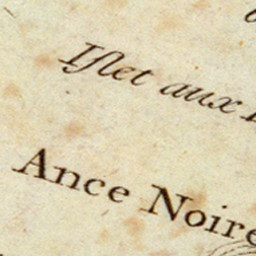 Iſlet aux
Ance Noire